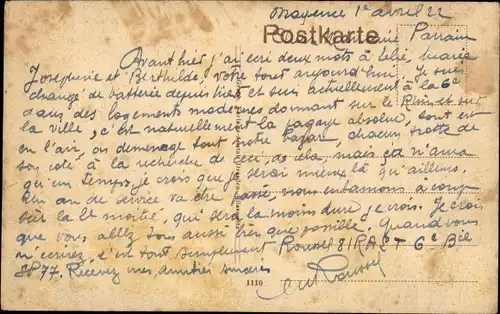 Mayence 1er avril 22
Postkarte
Parrain
Avant hier j'ai écri deux mots à bébé, Marie
Josephine et Berthilde, votre tour aujourd'hui. Je suis
changé de batterie depuis hier et suis actuellement à la 6e
dans des logements modernes donnant sur le Rhin et sur
la ville, c'est naturellement la pagaye absolue, tout est
en l'air, on demenage tout notre bazar, chacun trotte de
son coté à la recherche de ceci, de cela, mais ça n'aura
qu'un temps, je crois que je serai mieux là qu'ailleurs.
Un an de service va être passé, nous entamons à coup
sûr la 2e moitié, qui sera la moins dure je crois. Je crois
que vous allez tous aussi bien que possible. Quand vous
m'écrirez, c'est tout simplement Roussel 81 RAC 6e Bie
SP 77. Recevez mes amitiés sincères
Roussel
1110